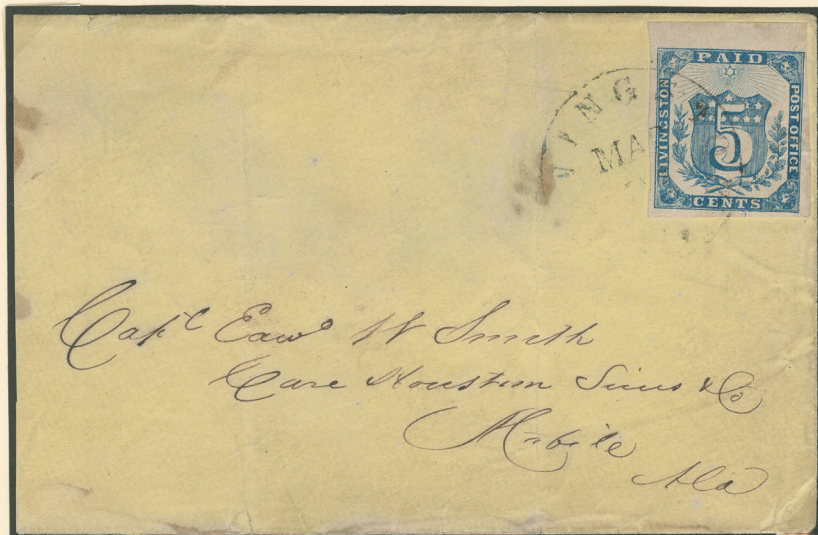 PAID
LIVINGSTON
POST OFFICE
5
CENTS
VINGS
MAR
Capt Edwd W Smith
Care Houston Sims & Co
Mobile
Ala